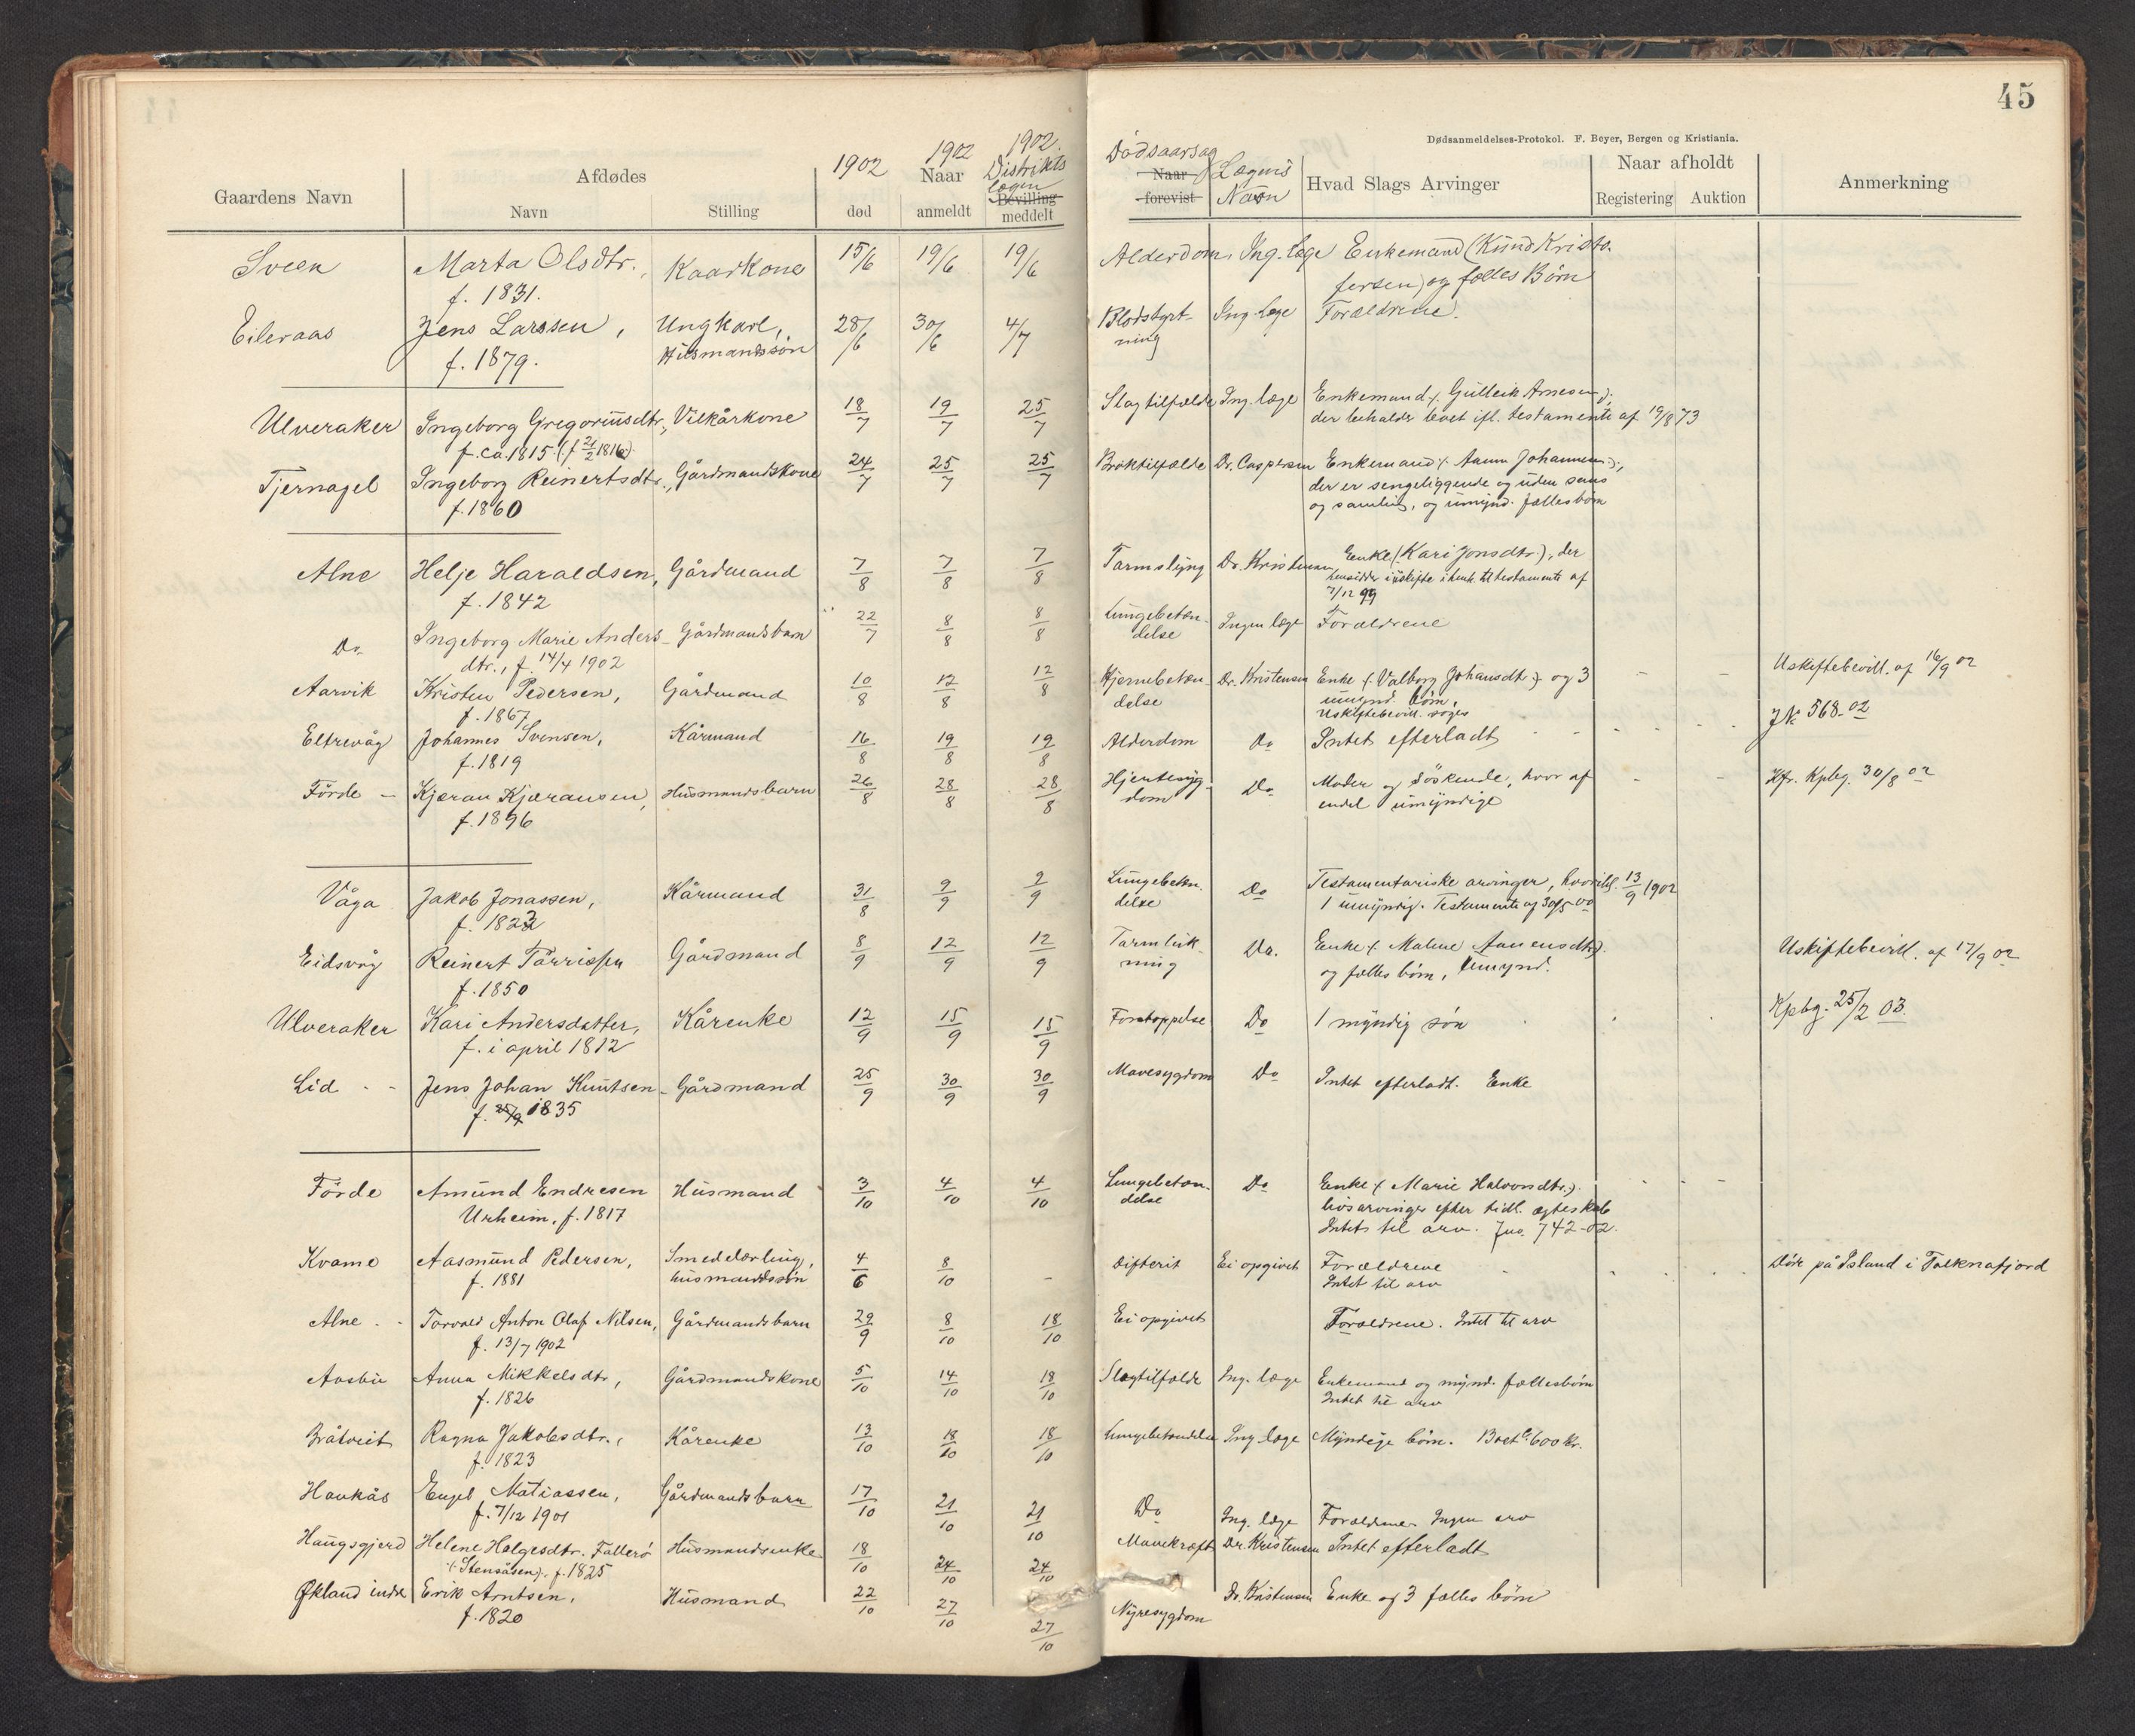 45
Dødsanmeldelses-Protokol. F. Beyer, Bergen og Kristiania.
Gaardens Navn
Afdødes
Navn
Stilling
1902
død
1902
Naar
anmeldt
1902.
Distrikts
lægen
Bevilling
meddelt
Dødsaarsag
Naar
forevist
Lægens
Navn
Hvad Slags Arvinger
Naar afholdt
Registering
Auktion
Anmerkning
Sveen Marta Olsdtr., Kaarkone 15/6 19/6 19/6 Alderdom Ing. læge Enkemand (Knud Kristo-
f. 1831. fersen) og fælles Børn
Eileraas Jens Larssen, Ungkarl, 28/6 30/6 4/7 Blodstyrt- Ing. læge Forældrene.
f. 1879. Husmandssøn ning
Ulveraker Ingeborg Gregoriusdtr., Vilkårkone 18/7 19/7 25/7 Slagtilfælde Ing. læge Enkemand (: Gulleik Arnesen :),
f. ca. 1815 (f. 21/2 1816) der beholder boet ifl. testamente af 19/8 73
Tjernagel Ingeborg Reinertsdtr., Gårdmandskone 24/7 25/7 25/7 Broktilfælde Dr. Caspersen Enkemand (: Aamu Johannesen :),
f. 1860 der er sengeliggende og uden sans
og samling, og umynd. fællesbørn
Alne Helje Haraldsen, Gårdmand 7/8 7/8 7/8 Tarmslyng Dr. Kristensen Enke (Kari Jonsdtr.), der
f. 1842 hensidder i uskifte i henh. til testamente af
7/12 99
Do Ingeborg Marie Anders- Gårdmandsbarn 22/7 8/8 8/8 Lungebetæn- Ingen læge Forældrene
dtr., f. 14/4 1902 delse
Aarvik Kristen Pedersen, Gårdmand 10/8 12/8 12/8 Hjernebetæn- Dr. Kristensen Enke (: Valborg Johansdtr :) og 3 - - Uskiftebevill. af 16/9 02
f. 1867 delse umynd. børn,
Uskiftebevill. søges
Eltrevåg Johannes Svensen, Kårmand 16/8 19/8 19/8 Alderdom Do Intet efterladt - - - - JN 568-02
f. 1819
Förde - Kjæran Kjæransen, Husmandsbarn 26/8 28/8 28/8 Hjertesyg- Do Moder og söskende, hvor af - - Kfr. Kpbg. 30/8 02
f. 1896 dom endel umyndige
Våga Jakob Jonassen, Kårmand 31/8 9/9 9/9 Lungebetæn- Do Testamentariske arvinger, hvoribl. 13/9 1902
f. 1823 delse 1 umyndig. Testamente af 30/5 00
Eidsvåg Reinert Törrissen Gårdmand 8/9 12/9 12/9 Tarmluk- Do. Enke (: Maline Aanensdtr :). Uskiftebevill. af 17/9 02
f. 1850 ning og fælles börn, umynd.
Ulveraker Kari Andersdatter, Kårenke 12/9 15/9 15/9 Forstoppelse Do 1 myndig sön - - - Kpbg. 25/2 03.
f. i april 1812
Lid - - Jens Johan Knutsen - Gårdmand 25/9 30/9 30/9 Mavesygdom Do Intet efterladt. Enke
f. 25/9 1835
Förde Amund Endresen Husmand 3/10 4/10 4/10 Lungebetæn- Do Enke (: Marie Halvorsdtr. :). - - -
Urheim, f. 1817 delse livsarvinger efter tidl. ægteskab
Intet til arv. Jno. 742-02.
Kvame Aasmund Pedersen, Smedelærling, 4/6 8/10 - Difterit Ei opgivet Forældrene - - - - Døde på Island i Talknafjord
f. 1881 husmandssön Intet til arv
Alne - - Torvald Anton Olaf Nilsen, Gårdmandsbarn 29/9 8/10 18/10 Ei opgivet Forældrene. Intet til arv
f. 13/7 1902
Aasbu Anna Mikkelsdtr., Gårdmandskone 5/10 14/10 18/10 Slagtilfælde Ing. læge Enkemand og mynd. fællesbörn
f. 1826 Intet til arv
Bråtveit Ragna Jakobsdtr., Kårenke 13/10 18/10 18/10 Lungebetændelse Ing læge Myndige börn. Boet ca 600 kr.
f. 1823
Haukås Engel Matiassen, Gårdmandsbarn 17/10 21/10 21/10 Do Ing. læge Forældrene. Ingen arv
f. 7/12 1901
Haugsgjerd Helene Helgesdtr. Falterö Husmandsenke 18/10 24/10 24/10 Mavekræft Dr. Kristensen Intet efterladt
(: Stensåsen :), f. 1825
Økland indre Erik Arntsen, Husmand 22/10 27/10 27/10 Nyresygdom Dr. Kristensen Enke og 3 fælles börn
f. 1820